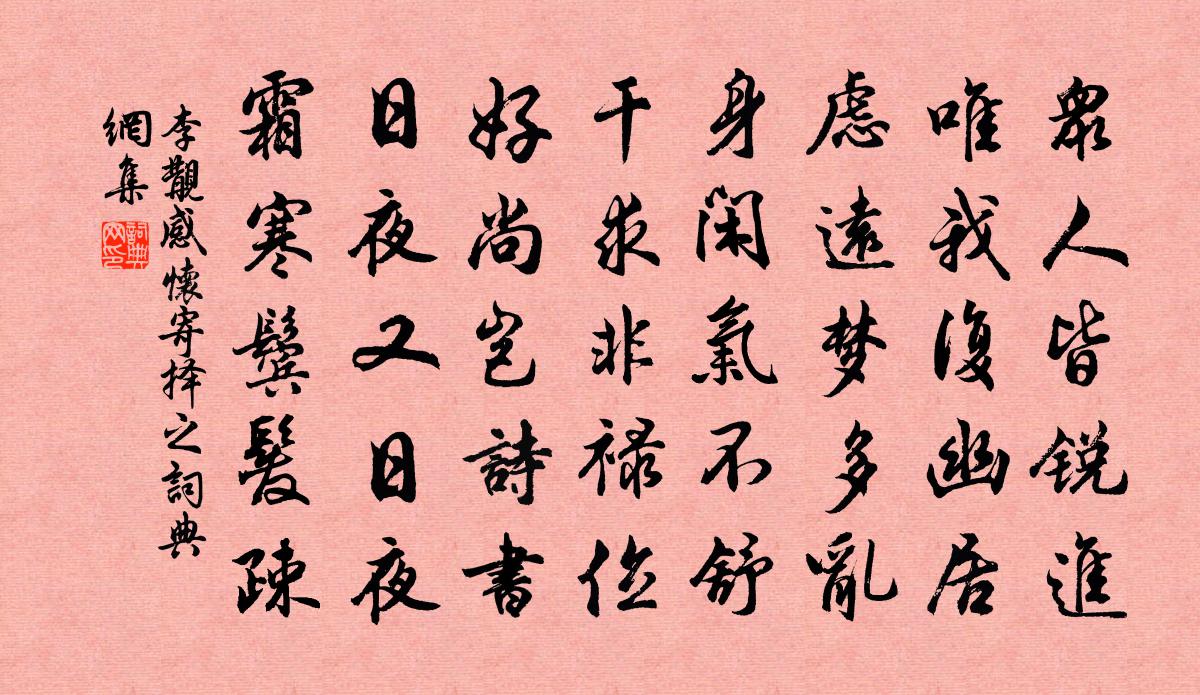 衆人皆锐進
唯我復幽居
慮遠梦多亂
身閑氣不舒
干求非禄位
好尚岂詩書
日夜又日夜
霜寒鬓髮疎
李覯感懷寄择之詞典
網集
詞典网印